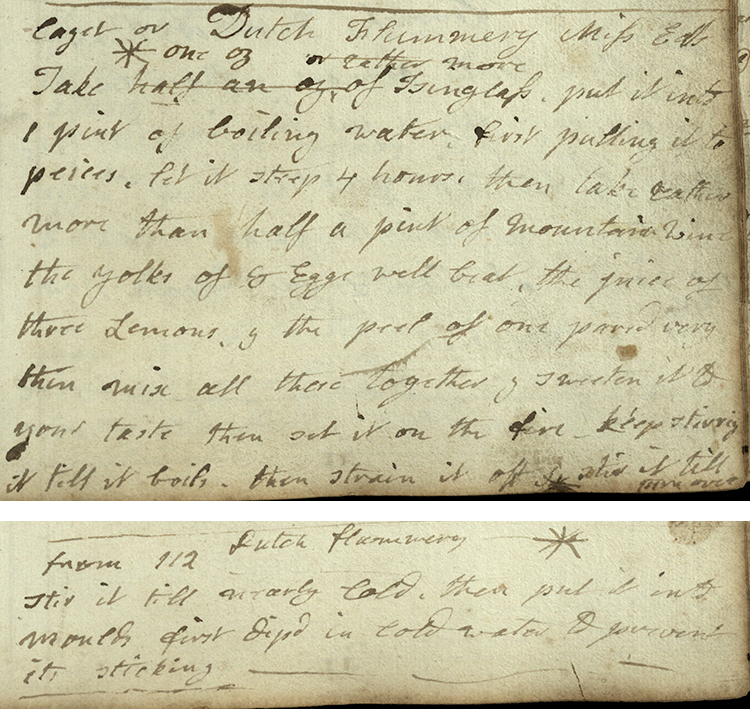 Eaget or Dutch Flummery Miss Edls
* one oz or rather more
Take half an oz, of Isinglass, put it into
1 pint of boiling water, first pulling it to
peices, let it steep 4 hours, then take rather
more than half a pint of Mountain Wine
the yolks of 8 Eggs well beat, the juice of
three Lemons, & the peel of one pared very
then mix all these together & sweeten it to
your taste then set it on the fire - keep stirring
it till it boils. then strain it off & stir it till
turn over
from 112 Dutch flummery *
stir it till nearly Cold, then put it into
moulds first dip'd in Cold water to prevent
its sticking